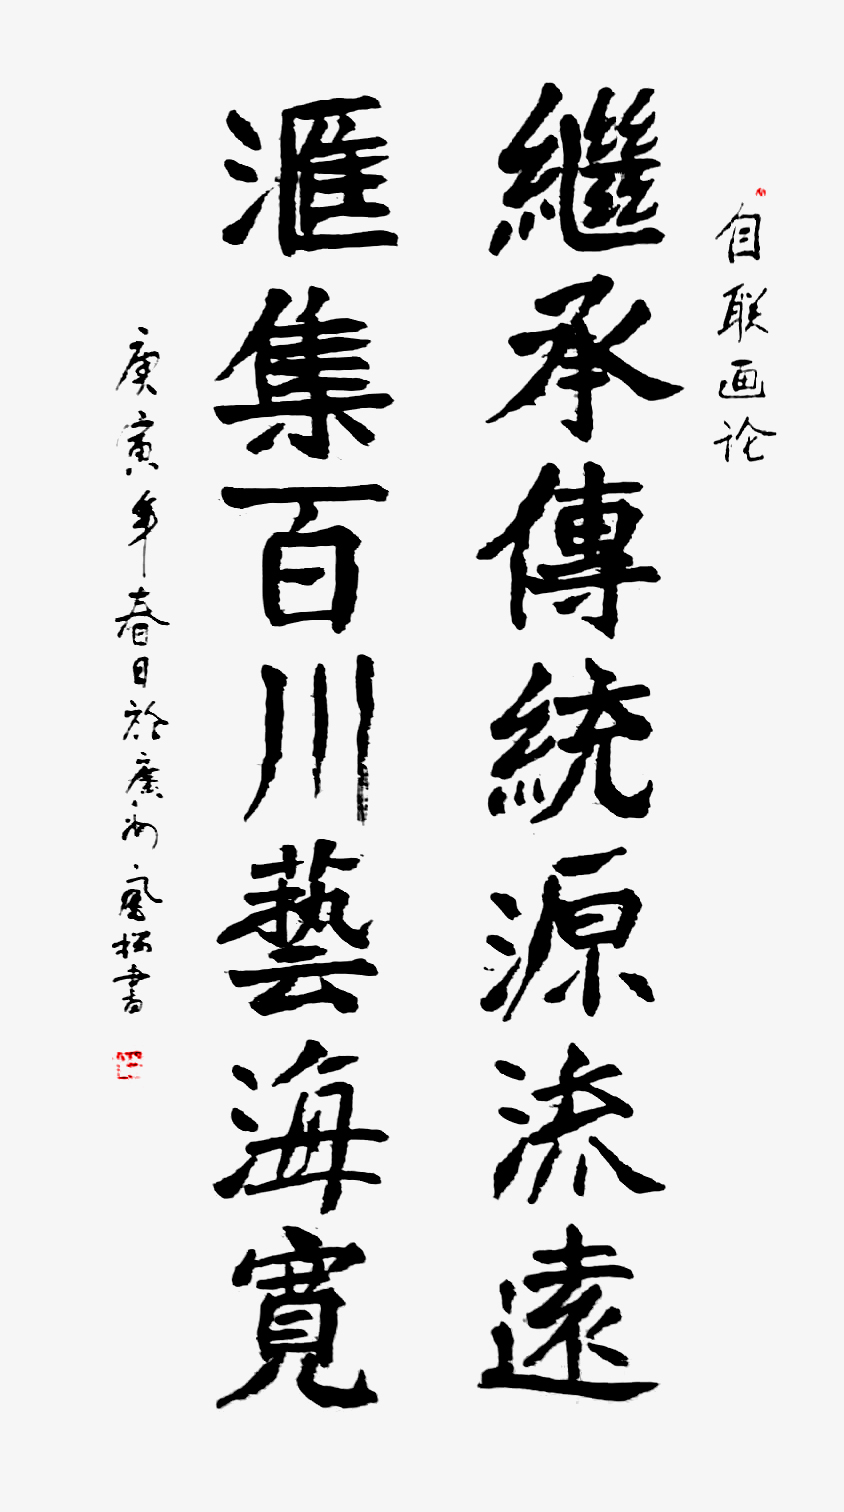 自联画论
繼承傳統源流遠
滙集百川藝海寬
庚寅年春日於廣州 拓書